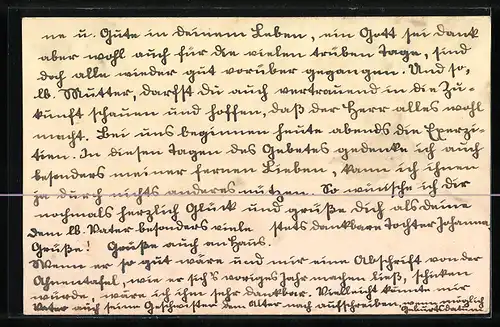 ne u. Gute in deinem Leben, ein Gott sei dank
aber wohl auch für die vielen trüben Tage, sind
doch alle wieder gut vorüber gegangen. Und so,
lb. Mutter, darfst du auch vertrauend in die Zu-
kunft schauen und hoffen, daß der Herr alles wohl
macht. Bei uns beginnen heute abends die Exerzi-
tien. In diesen Tagen des Gebetes gedenke ich auch
besonders meiner fernen Lieben, kann ich ihnen
ja durch nichts anderes nützen. So wünsche ich dir
nochmals herzlich Glück und grüße dich als deine
Dem lb. Vater besonders viele stets dankbare Tochter Johanna
Grüße! Grüße auch an Hans.
Wenn er so gut wäre und mir eine Abschrift von der
Ahnentafel, wie er sich's voriges Jahr machen ließ, schicken
würde, wäre ich ihm sehr dankbar. Vielleicht könnte mir
Vater auch seine Geschwister dem Alter nach aufschreiben, wenn möglich
Geburtsdatum